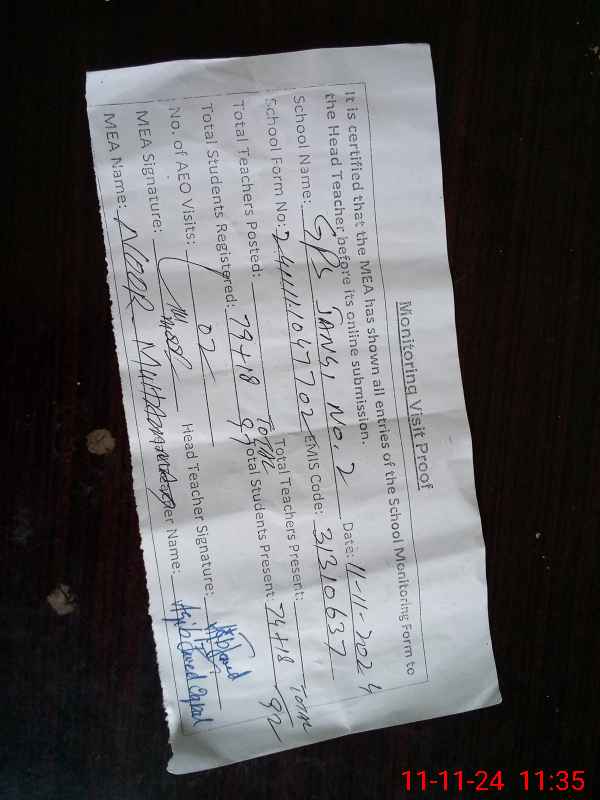 Monitoring Visit Proof
It is certified that the MEA has shown all entries of the School Monitoring Form to
the Head Teacher before its online submission.
School Name: GPS JANGI NO. 2 Date: 11-11-2024
School Form No: EMIS Code: 31310637
Total Teachers Posted: Total Teachers Present:
Total Students Registered: 79+18 TOTAL 97 Total Students Present: 74+18 TOTAL 92
No. of AEO Visits: 02
MEA Signature: Head Teacher Signature:
MEA Name: NOOR MUHAMMAD er Name:
11-11-24 11:35